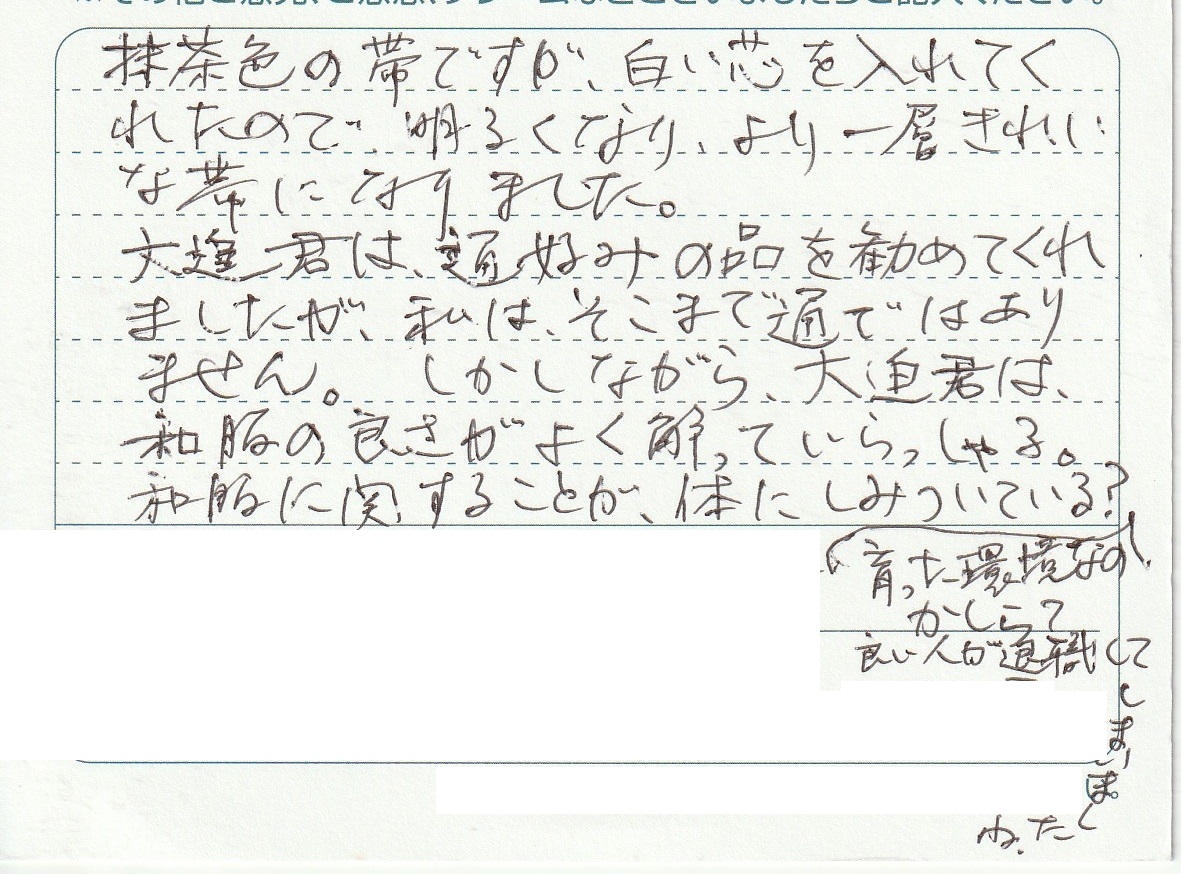 抹茶色の帯ですが、白い芯を入れてく
れたので、明るくなり、より一層きれい
な帯になりました。
大迫君は、通好みの品を勧めてくれ
ましたが、私は、そこまで通ではあり
ません。しかしながら、大迫君は、
和服の良さがよく解っていらっしゃる。
和服に関することが、体にしみついている?
育った環境なの
かしら?
良い人が退職して
しまい
ました
ね。